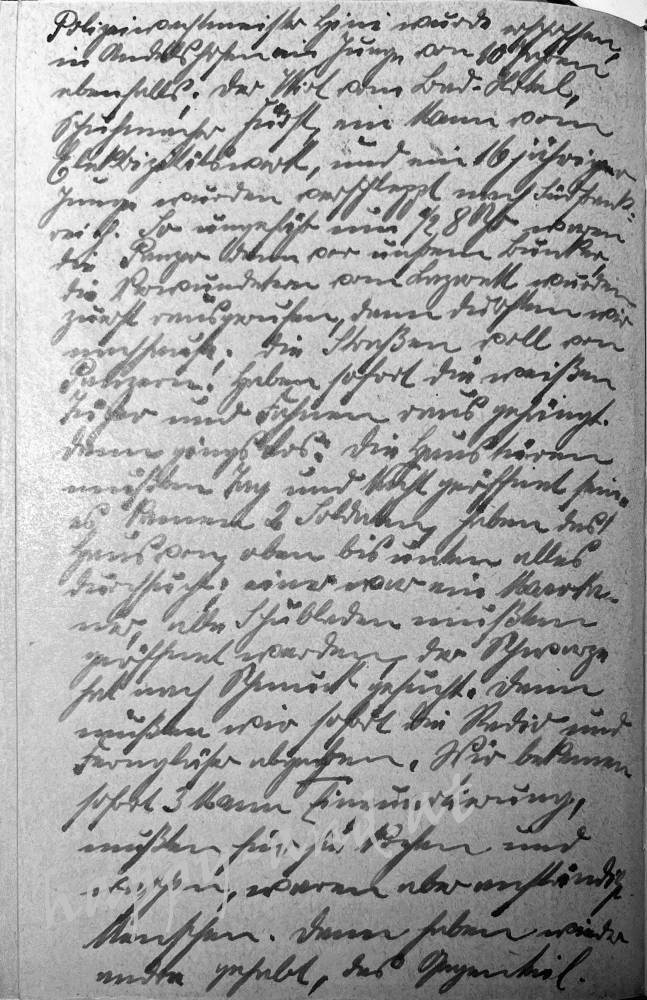 Polizeiwachtmeister Heini wurde erschossen,
in Andelshofen ein Junge von 10 Jahren
ebenfalls; der Wirt vom Bad-Hotel,
Schuhmacher Fürst, ein Mann vom
Elektrizitätswerk, und ein 16 jähriger
Junge wurden verschleppt nach Südfrank-
reich. So ungefähr um ½ 8 Uhr waren
die Panzer dann vor unserm Bunker,
die Verwundeten vom Lazarett wurden
zuerst rausgerufen, dann durften wir
nachhause. Die Straßen voll von
Panzern! Haben sofort die weißen
Tücher und Fahnen raus gehängt.
Dann gings los: die Haustüren
mußten Tag und Nacht geöffnet sein.
es kamen 2 Soldaten, haben das
Haus von oben bis unten alles
durchsucht; einer war ein Marokka-
ner, alle Schubladen mußten
geöffnet werden, der Schwarze
hat nach Schmuck gesucht. Dann
mußten wir sofort die Radio und
Ferngläser abgeben. Wir bekamen
sofort 3 Mann Einquartierung,
mußten für sie kochen und
waschen, waren aber anständige
Menschen. Dann haben wir wieder
andre gehabt, das Gegenteil.
happy-and.at